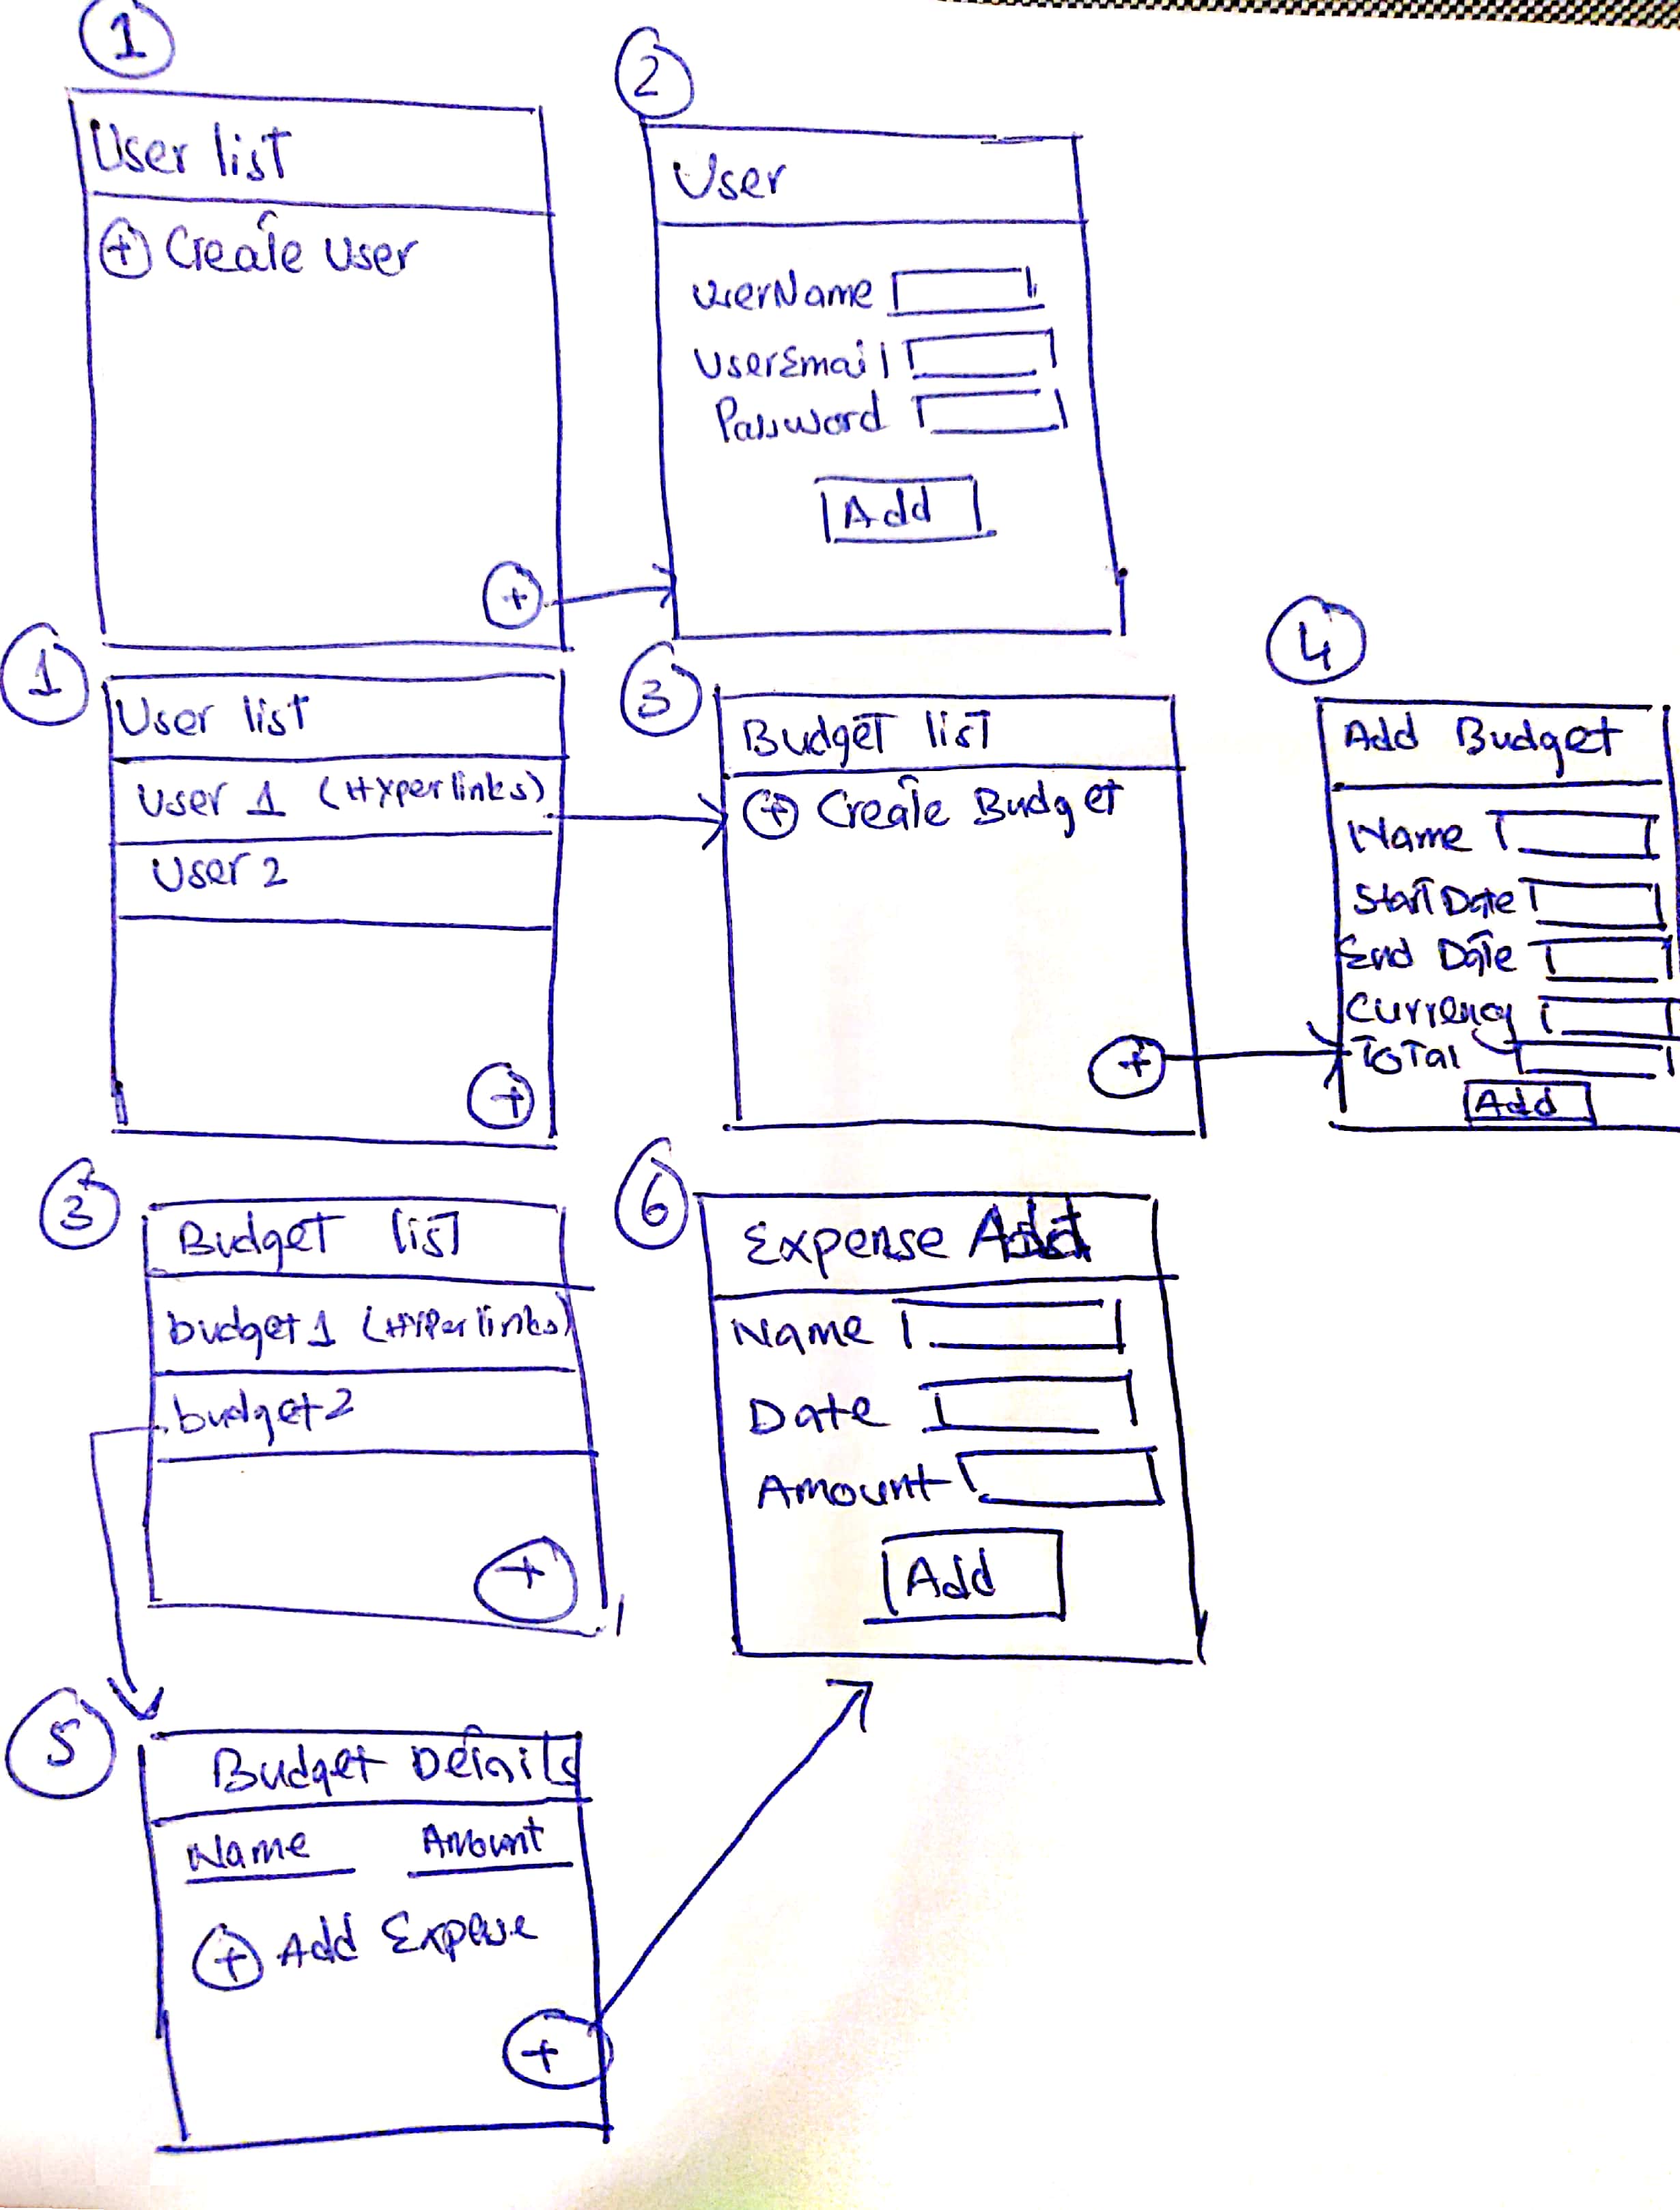 1
User list
+ Create User
+
2
User
UserName
UserEmail
Password
Add
1
User list
User 1 (Hyperlinks)
User 2
+
3
Budget list
+ Create Budget
+
4
Add Budget
Name
Start Date
End Date
Currency
Total
Add
3
Budget list
budget 1 (Hyperlinks)
budget 2
+
6
Expense Add
Name
Date
Amount
Add
5
Budget Details
Name Amount
+ Add Expense
+